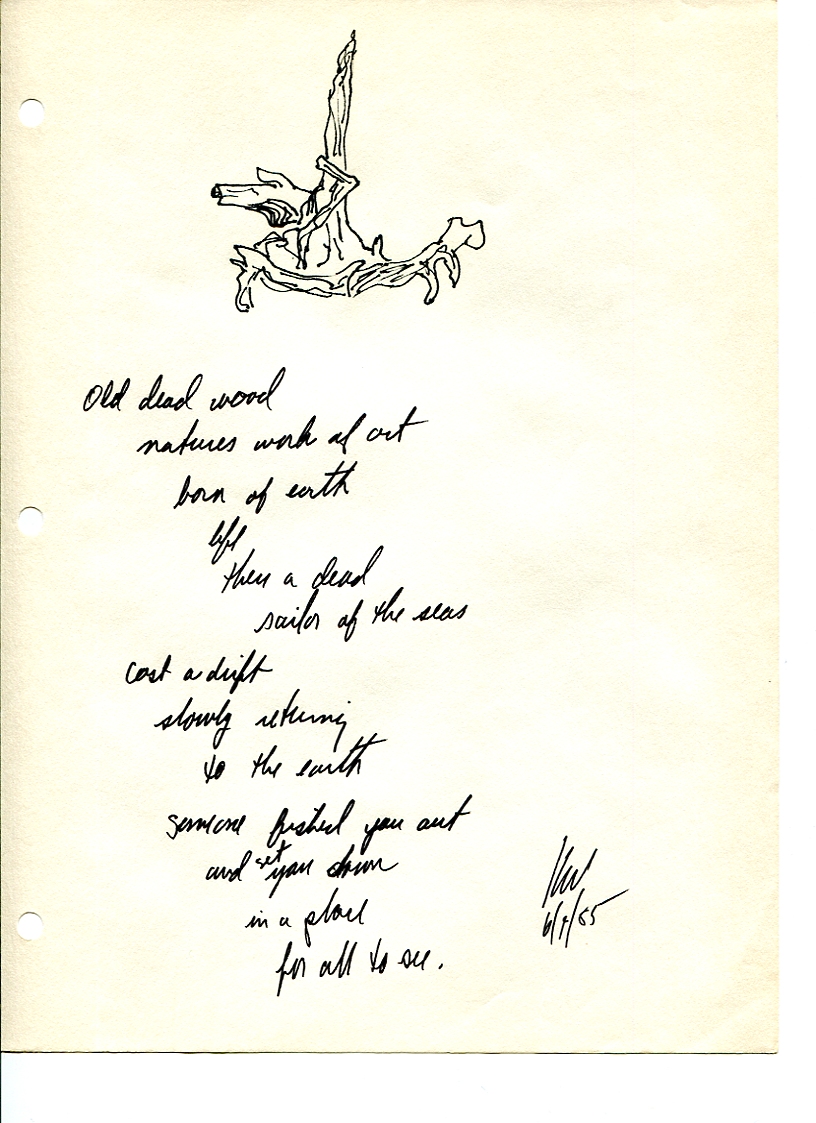 Old dead wood
natures work of art
born of earth
life
then a dead
sailor of the seas
cast a drift
slowly returning
to the earth
someone fished you out
and set you down
in a place
for all to see.